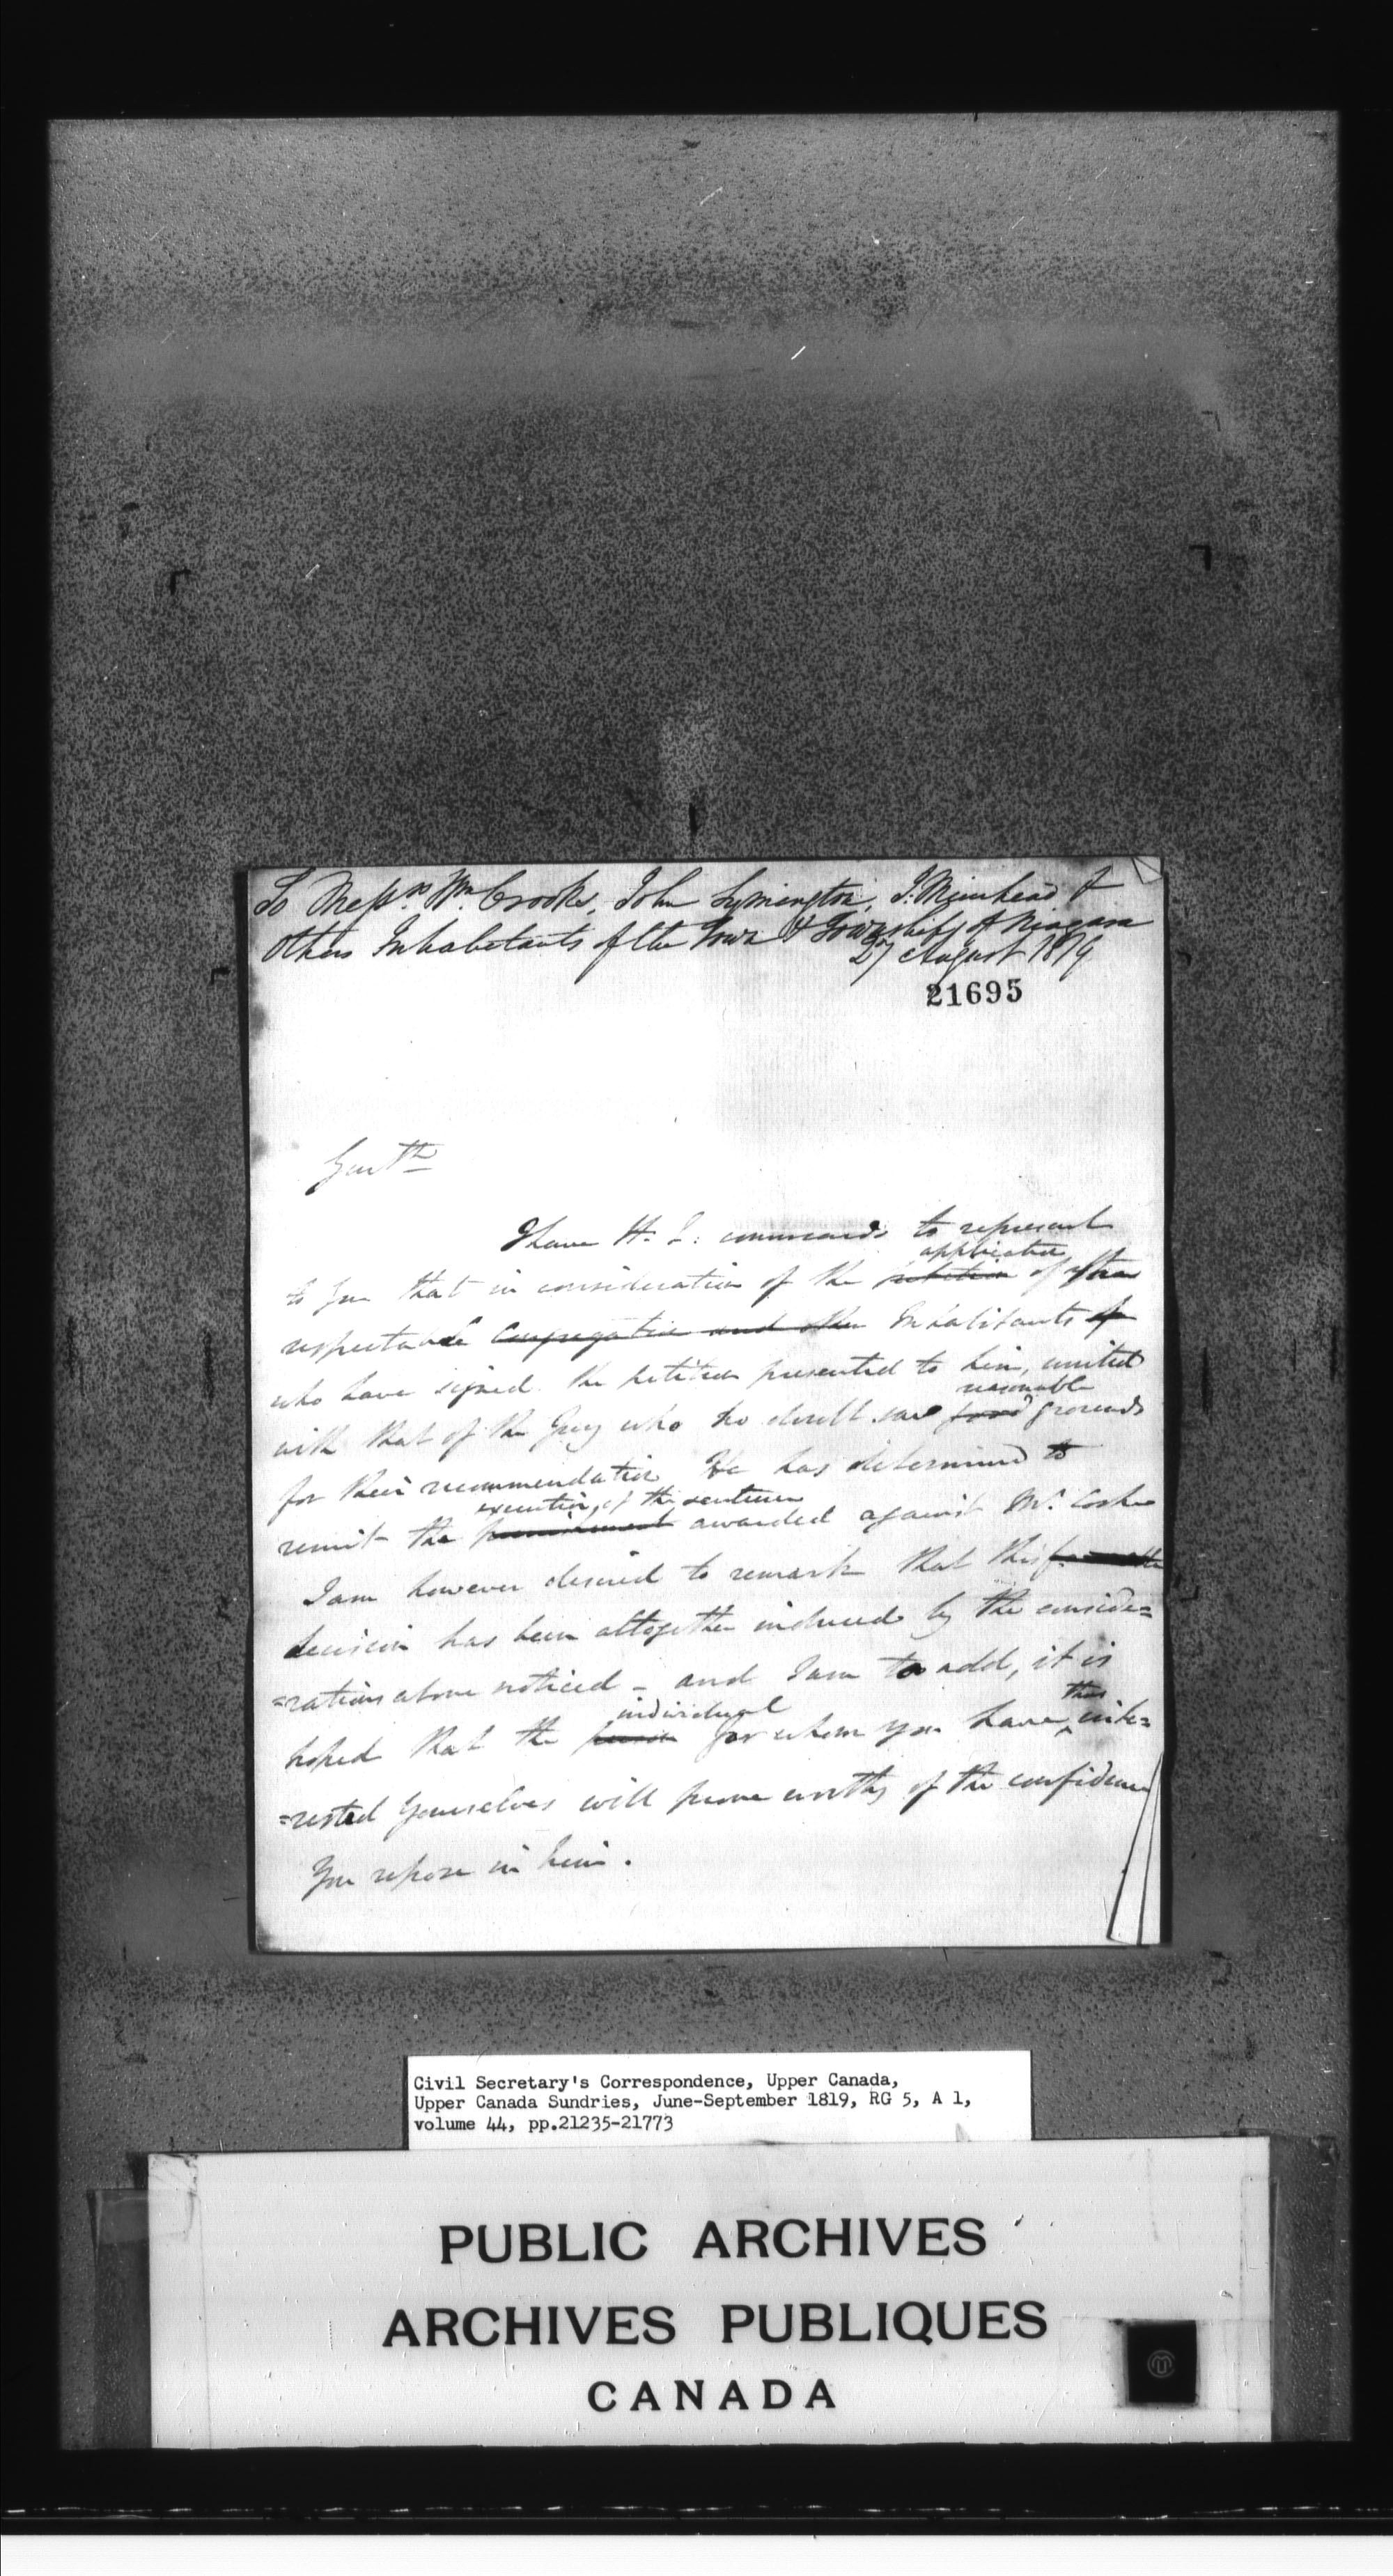 To Messrs Wm Crooks, John Symington, J. Muirhead &
Others Inhabitants of the Town & Township of Niagara
27 August 1819
21695
Gentn
I have H. E: commands to represent
application
to you that in consideration of the petition of
respectable Congregation and other Inhabitants of
who have signed the petition presented to him, united
reasonable
with that of the Jury who no doubt saw good grounds
for their recommendation He has determined to
execution of the sentence
remit the punishment awarded against Mr.
I am however desired to remark that this
decision has been altogether induced by the conside=
=rations above noticed – and I am to add, it is
individual thus
hoped that the person for whom you have inte=
=rested yourselves will prove worthy of the confidence
You repose in him.
Civil Secretary's Correspondence, Upper Canada,
Upper Canada Sundries, June-September 1819, RG 5, A 1,
volume 44, pp.21235-21773
PUBLIC ARCHIVES
ARCHIVES PUBLIQUES
CANADA